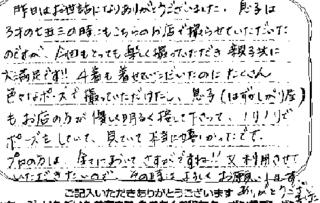 昨日はお世話になりありがとうございました。息子は
3才の七五三の時もこちらのお店で撮らせていただいた
のですが、今回もとっても楽しく撮っていただき親子共に
大満足です!! 4着も着せていただいたのに たくさん
色々なポーズで撮っていただけたし、息子(はずかしがり屋)
もお店の方が優しく明るく接して下さって、ノリノリで
ポーズをしていて、見ていて本当に嬉しかったです。
プロの方は、全てにおいてさすがですね!! 又利用させて
いただきたいので、その時はよろしくお願いします。
ご記入いただきありがとうございます ありがとうございました